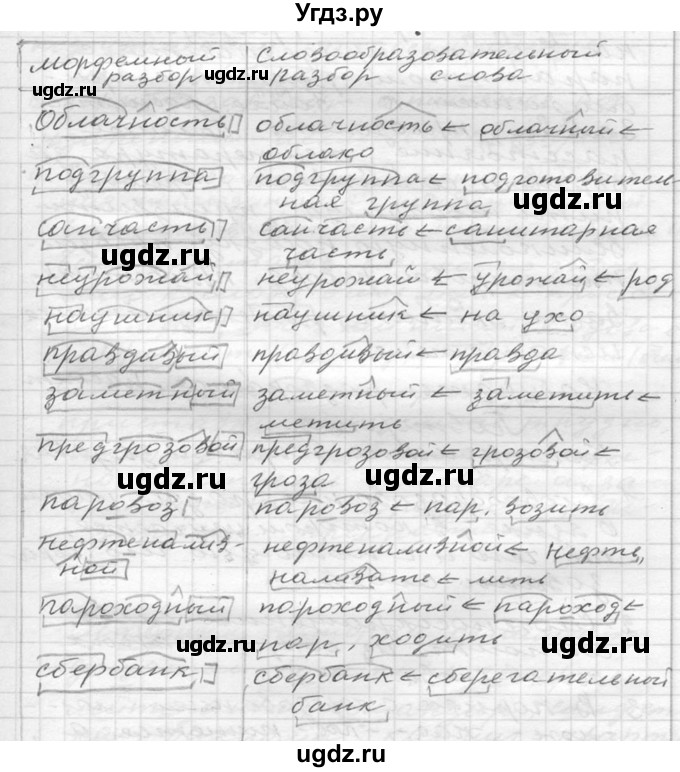 Угдз.ру
морфемный словообразовательный
разбор ugdz.ru разбор слова
облачность облачность ← облачный ←
облако
подгруппа подгруппа ← подготовитель-
ная группа ugdz.ru
санчасть санчасть ← санитарная
ugdz.ru часть
неурожай неурожай ← урожай ← род
наушник наушник ← на ухо
ugdz.ru ugdz.ru
правдивый правдивый ← правда
заметный заметный ← заметить ←
метить
предгрозовой предгрозовой ← грозовой ←
ugdz.ru гроза ugdz.ru
паровоз паровоз ← пар, возить
ugdz.ru
нефтеналив- нефтеналивной ← нефть,
ной наливать ← лить
пароходный пароходный ← пароход ←
ugdz.ru пар, ходить ugdz.ru
сбербанк сбербанк ← сберегательный
банк
ugdz.ru